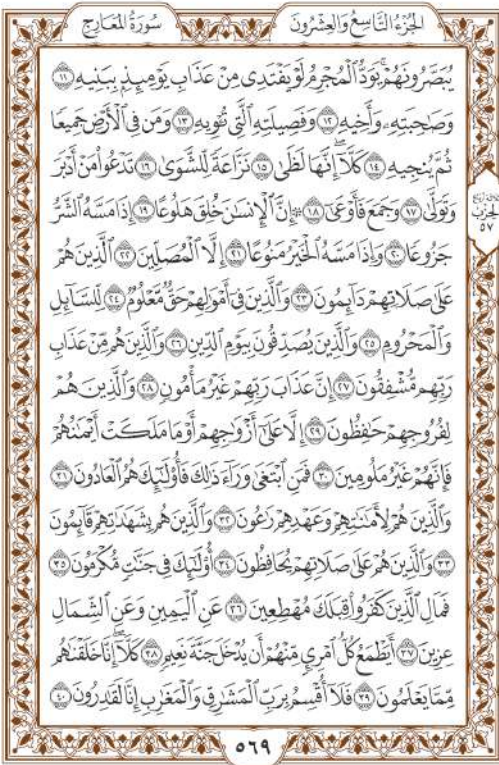 سُورَةُ المَعَارِجِ
الجُزْءُ التَّاسِعُ وَالعِشْرُونَ
يُبَصَّرُونَهُمْ ۚ يَوَدُّ ٱلْمُجْرِمُ لَوْ يَفْتَدِى مِنْ عَذَابِ يَوْمِئِذٍۭ بِبَنِيهِ ١١
وَصَٰحِبَتِهِۦ وَأَخِيهِ ١٢ وَفَصِيلَتِهِ ٱلَّتِى تُـْٔوِيهِ ١٣ وَمَن فِى ٱلْأَرْضِ جَمِيعًا
ثُمَّ يُنجِيهِ ١٤ كَلَّآ ۖ إِنَّهَا لَظَىٰ ١٥ نَزَّاعَةً لِّلشَّوَىٰ ١٦ تَدْعُوا۟ مَنْ أَدْبَرَ
وَتَوَلَّىٰ ١٧ وَجَمَعَ فَأَوْعَىٰٓ ١٨ ۞ إِنَّ ٱلْإِنسَٰنَ خُلِقَ هَلُوعًا ١٩ إِذَا مَسَّهُ ٱلشَّرُّ
جَزُوعًا ٢٠ وَإِذَا مَسَّهُ ٱلْخَيْرُ مَنُوعًا ٢١ إِلَّا ٱلْمُصَلِّينَ ٢٢ ٱلَّذِينَ هُمْ
عَلَىٰ صَلَاتِهِمْ دَآئِمُونَ ٢٣ وَٱلَّذِينَ فِىٓ أَمْوَٰلِهِمْ حَقٌّ مَّعْلُومٌ ٢٤ لِّلسَّآئِلِ
وَٱلْمَحْرُومِ ٢٥ وَٱلَّذِينَ يُصَدِّقُونَ بِيَوْمِ ٱلدِّينِ ٢٦ وَٱلَّذِينَ هُم مِّنْ عَذَابِ
رَبِّهِم مُّشْفِقُونَ ٢٧ إِنَّ عَذَابَ رَبِّهِمْ غَيْرُ مَأْمُونٍ ٢٨ وَٱلَّذِينَ هُمْ
لِفُرُوجِهِمْ حَٰفِظُونَ ٢٩ إِلَّا عَلَىٰٓ أَزْوَٰجِهِمْ أَوْ مَا مَلَكَتْ أَيْمَٰنُهُمْ
فَإِنَّهُمْ غَيْرُ مَلُومِينَ ٣٠ فَمَنِ ٱبْتَغَىٰ وَرَآءَ ذَٰلِكَ فَأُو۟لَٰٓئِكَ هُمُ ٱلْعَادُونَ ٣١
وَٱلَّذِينَ هُمْ لِأَمَٰنَٰتِهِمْ وَعَهْدِهِمْ رَٰعُونَ ٣٢ وَٱلَّذِينَ هُم بِشَهَٰدَٰتِهِمْ قَآئِمُونَ
٣٣ وَٱلَّذِينَ هُمْ عَلَىٰ صَلَاتِهِمْ يُحَافِظُونَ ٣٤ أُو۟لَٰٓئِكَ فِى جَنَّٰتٍ مُّكْرَمُونَ ٣٥
فَمَالِ ٱلَّذِينَ كَفَرُوا۟ قِبَلَكَ مُهْطِعِينَ ٣٦ عَنِ ٱلْيَمِينِ وَعَنِ ٱلشِّمَالِ
عِزِينَ ٣٧ أَيَطْمَعُ كُلُّ ٱمْرِئٍ مِّنْهُمْ أَن يُدْخَلَ جَنَّةَ نَعِيمٍ ٣٨ كَلَّآ ۖ إِنَّا خَلَقْنَٰهُم
مِّمَّا يَعْلَمُونَ ٣٩ فَلَآ أُقْسِمُ بِرَبِّ ٱلْمَشَٰرِقِ وَٱلْمَغَٰرِبِ إِنَّا لَقَٰدِرُونَ ٤٠
الحزب
٥٧
٥٦٩